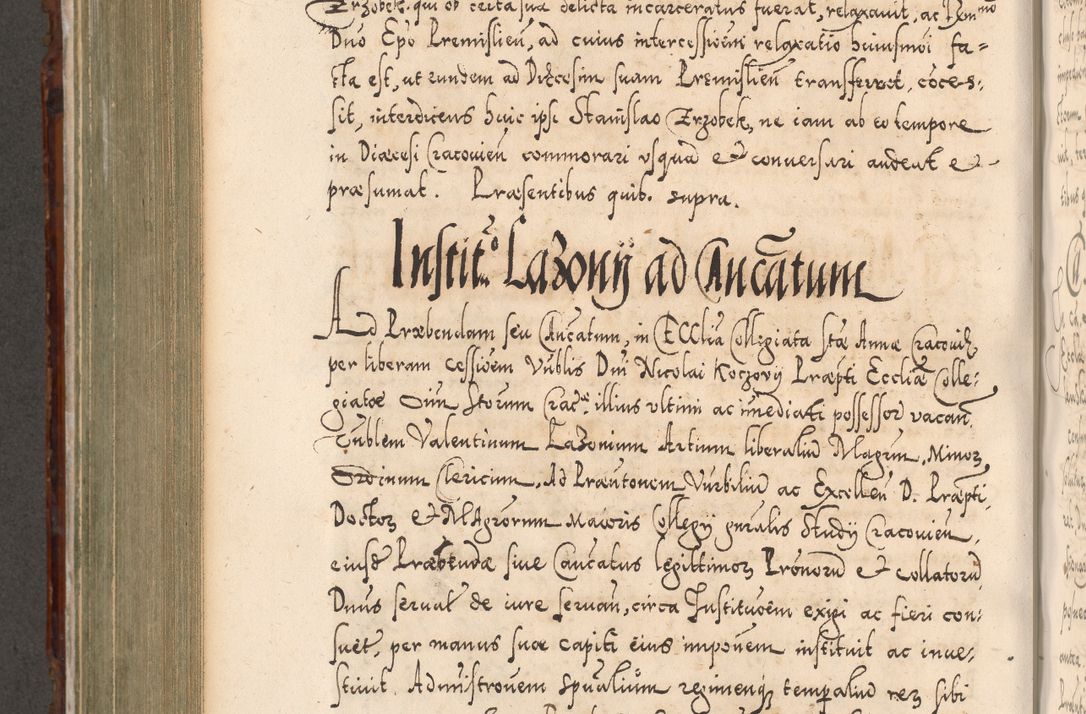 Erzobek, qui ob certa sua delicta incarceratus fuerat, relaxavit, ac Rmo
Dno Epo Premislien, ad cuius intercessionem relaxatio huiusmoi fa=
cta est, ut eundem ad Diæcesim suam Premislien transferret, cõces=
sit, interdicens huic ipsi Stanislao Erzobek, ne iam ab eo tempore
in Diæcesi Cracovien commorari usquã et conversari audeat et
præsumat. Præsentibus quib. supra.
Instit:o Lazonij ad Cancãtum
Ad Præbendam seu Cancatum, in Ecclia Collegiata Stæ Annæ Cracovien
per liberam cessioem Vnblis Dni Nicolai Koczovij Præpti Eccliæ Colle=
giatæ Oium Storum Crac. illius ultimi ac imediati possessor vacan
Vnblem Valentinum Lazonium Artium liberaliu Magrum, Minor
Ordinum Clericum, Ad Præntonem Vnrbiliu ac Excellen D. Præpti
Doctor et Magrorum Maioris Collegij gnralis Studij Cracovien,
eiusd Præbendæ sive Cancatus legittimor Pronoru et collatoru
Dnus servat de iure servan, circa Institucoem exigi ac fieri con=
suet, per manus suæ capiti eius imponem instituit ac inve=
stivit. Administronem spualium regimenq temporaliu rer sibi